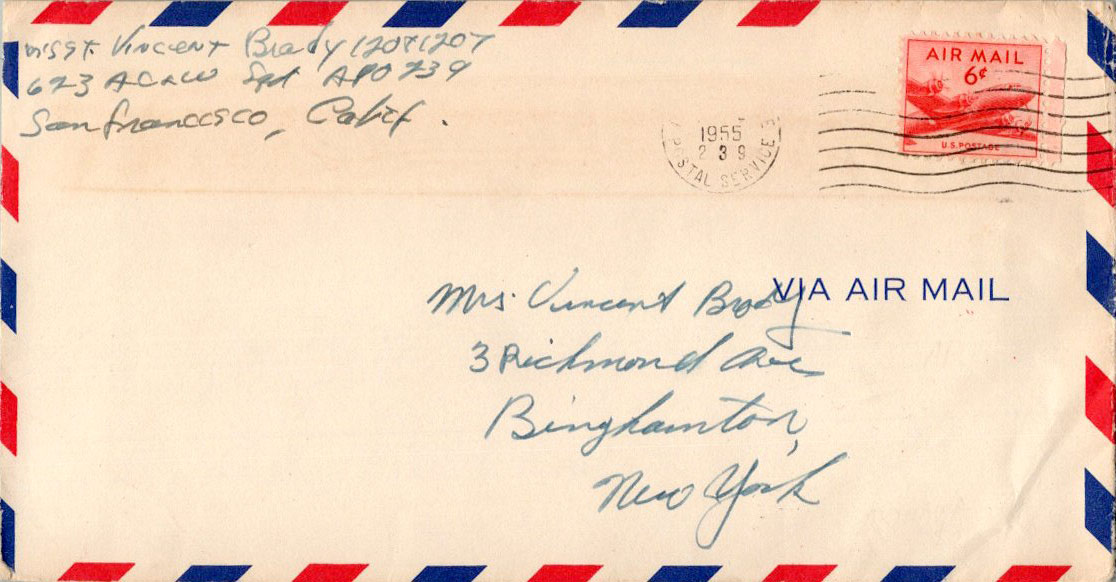 M/Sgt. Vincent Brady 12041207
623 AC&W Sqd APO 239
San Francisco, Calif.
1955
2 3 9
POSTAL SERVICE
AIR MAIL
6¢
U.S. POSTAGE
VIA AIR MAIL
Mrs. Vincent Brady
3 Richmond Ave
Binghamton,
New York